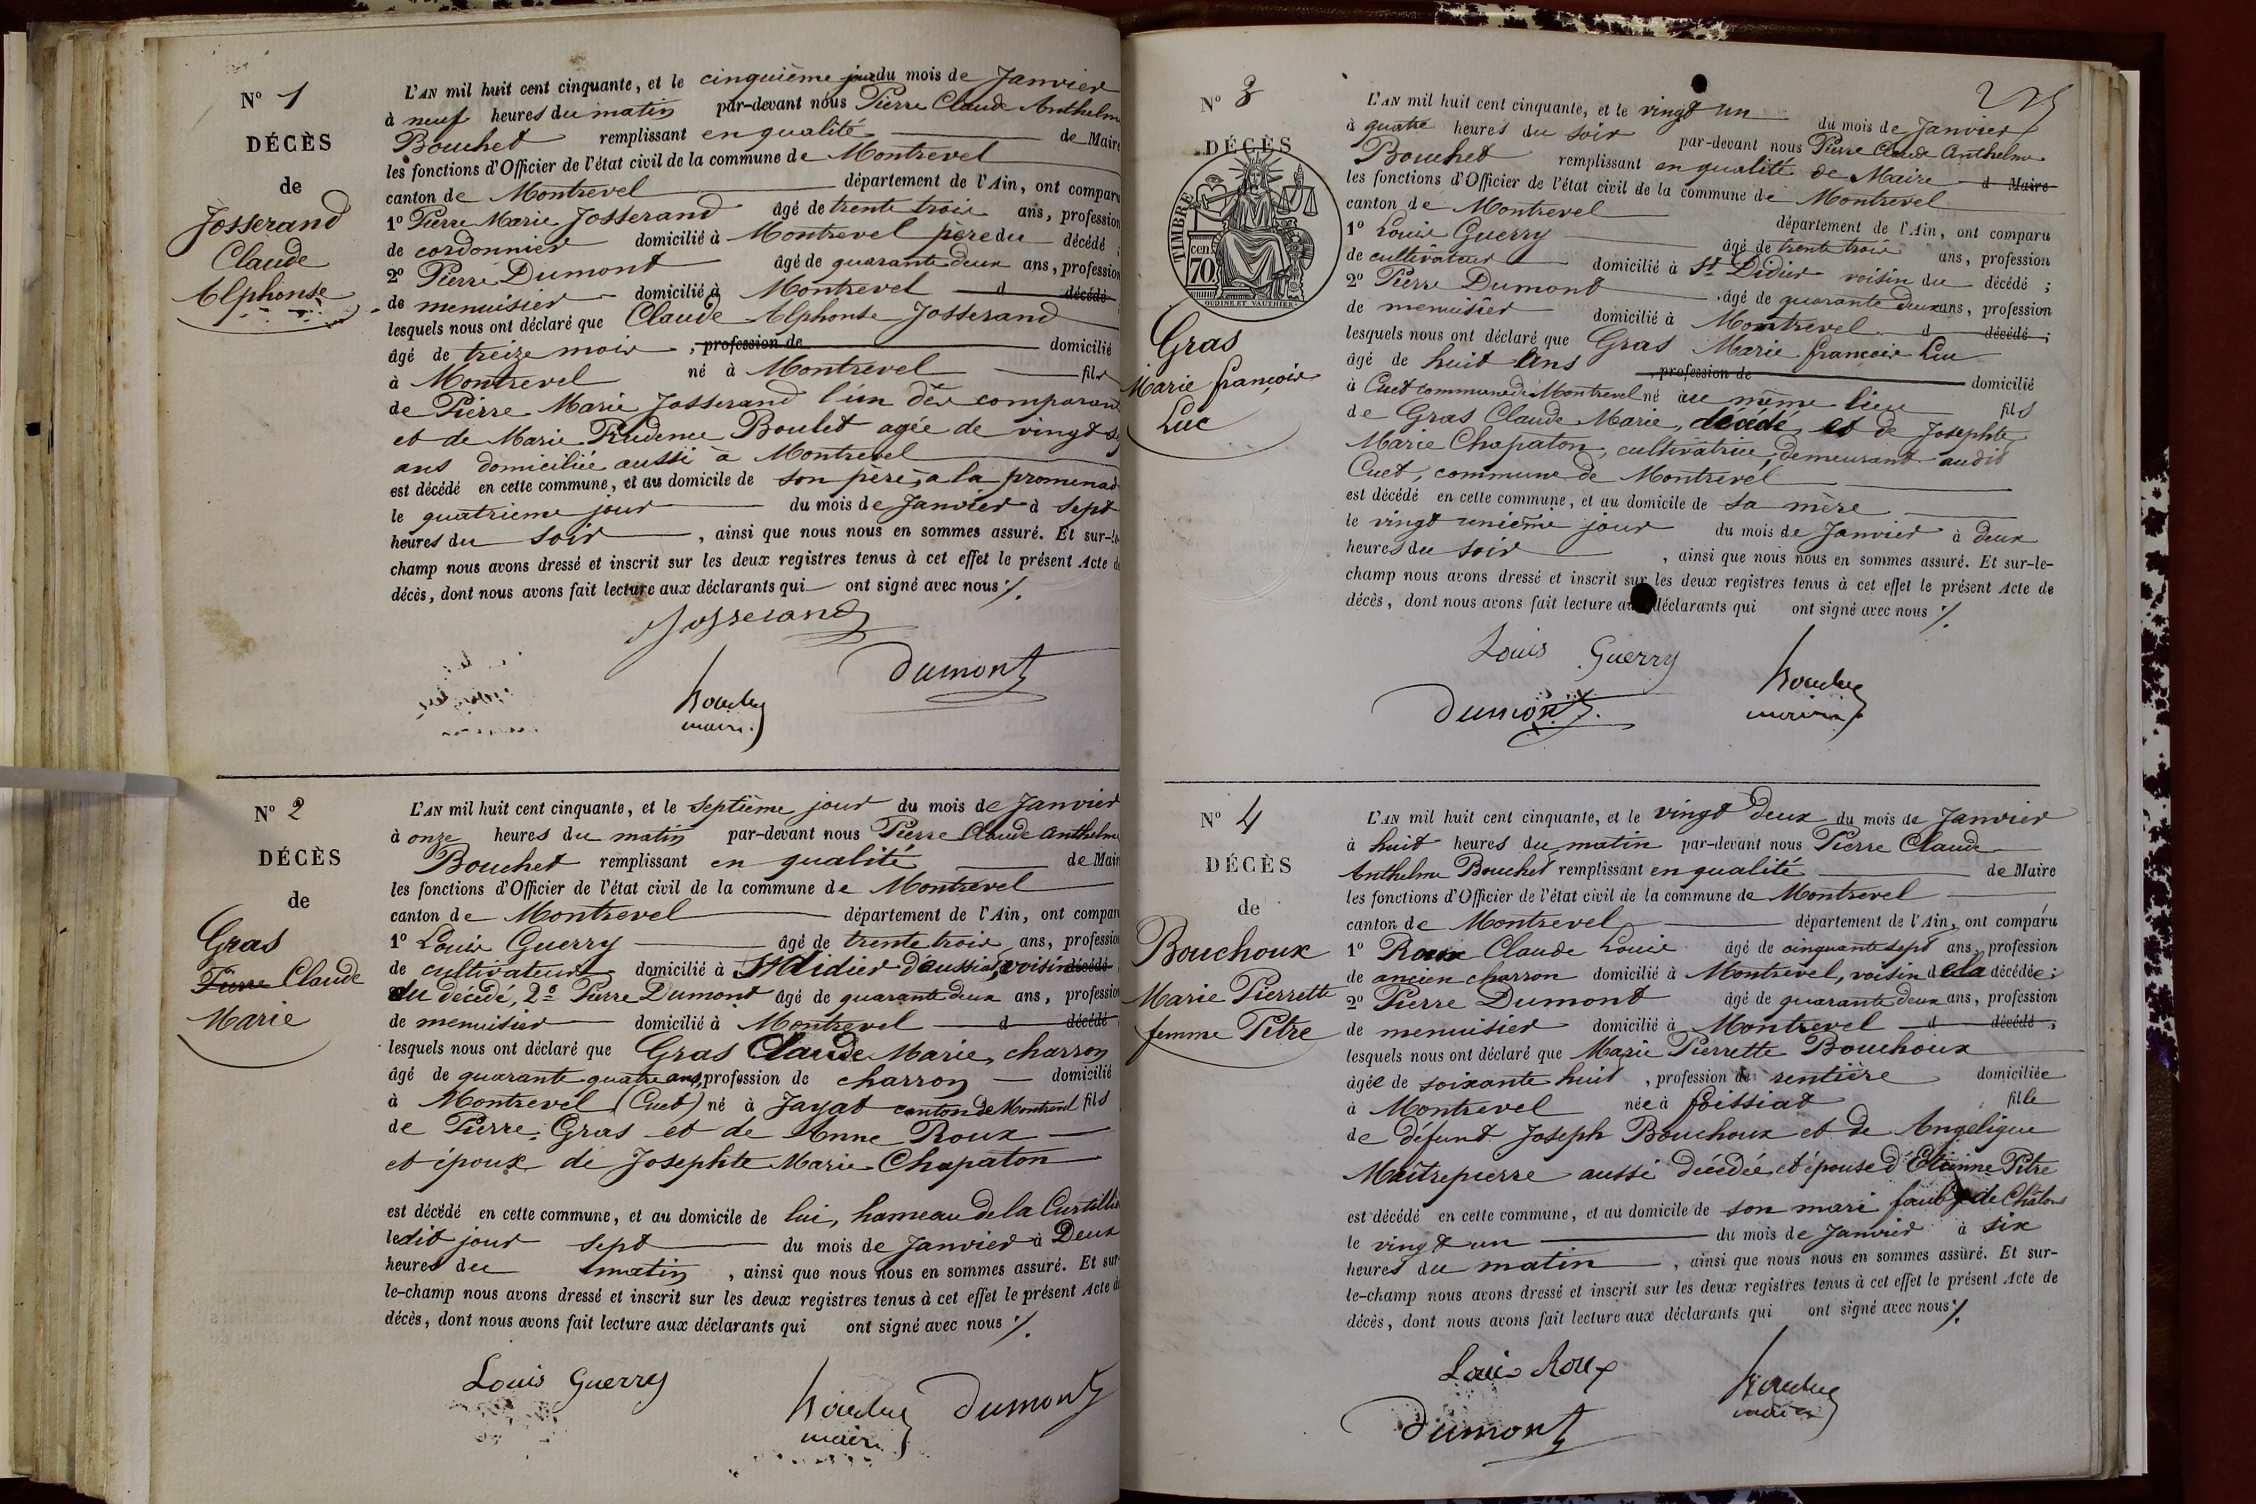 N° 1
DÉCÈS
de
Josserand
Claude
Alphonse
L'AN mil huit cent cinquante, et le cinquième jour du mois de Janvier
à neuf heures du matin par-devant nous Pierre Claude Anthelme
Bouchet remplissant en qualité de Maire
les fonctions d'Officier de l'état civil de la commune de Montrevel
canton de Montrevel département de l'Ain, ont comparu
1° Pierre Marie Josserand âgé de trente trois ans, profession
de cordonnier domicilié à Montrevel pere du décédé ;
2° Pierre Dumont âgé de quarante deux ans, profession
de menuisier domicilié à Montrevel d décédé
lesquels nous ont déclaré que Claude Alphonse Josserand
âgé de treize mois , profession de domicilié
à Montrevel né à Montrevel fils
de Pierre Marie Josserand l'un des comparant
et de Marie Prudence Boulet agée de vingt
ans domiciliée aussi à Montrevel
est décédé en cette commune, et au domicile de son père, a la promenad
le quatrieme jour du mois de Janvier à sept
heures du soir , ainsi que nous nous en sommes assuré. Et sur-le-
champ nous avons dressé et inscrit sur les deux registres tenus à cet effet le présent Acte de
décès, dont nous avons fait lecture aux déclarants qui ont signé avec nous ./.
Josserand
Dumont
Bouchet
maire
N° 2
DÉCÈS
de
Gras
Pierre Claude
Marie
L'AN mil huit cent cinquante, et le septième jour du mois de Janvier
à onze heures du matin par-devant nous Pierre Claude Anthelme
Bouchet remplissant en qualité de Maire
les fonctions d'Officier de l'état civil de la commune de Montrevel
canton de Montrevel département de l'Ain, ont comparu
1° Louis Guerry âgé de trente trois ans, profession
de cultivateur domicilié à St didier d'aussiat, voisin décédé
du décédé, 2° Pierre Dumont âgé de quarante deux ans, profession
de menuisier domicilié à Montrevel d décédé
lesquels nous ont déclaré que Gras Claude Marie, charron
âgé de quarante quatre ans, profession de charron domicilié
à Montrevel (Cuet) né à Jayat canton de Montrevel fils
de Pierre Gras et de Anne Roux
et époux de Josephte Marie Chapaton
est décédé en cette commune, et au domicile de lui, hameau de la Curtillie
ledit jour sept du mois de Janvier à Deux
heures du matin , ainsi que nous nous en sommes assuré. Et sur-
le-champ nous avons dressé et inscrit sur les deux registres tenus à cet effet le présent Acte de
décès, dont nous avons fait lecture aux déclarants qui ont signé avec nous ./.
Louis Guerry
Bouchet
maire
Dumont
225
N° 3
DÉCÈS
TIMBRE
cen.
70
OUDINE ET VAUTHIER
Gras
Marie françois
Luc
L'AN mil huit cent cinquante, et le vingt un du mois de Janvier
à quatre heures du soir par-devant nous Pierre Claude Anthelme
Bouchet remplissant en qualité de Maire d Maire
les fonctions d'Officier de l'état civil de la commune de Montrevel
canton de Montrevel département de l'Ain, ont comparu
1° Louis Guerry âgé de trente trois ans, profession
de cultivateur domicilié à St Didier voisin du décédé ;
2° Pierre Dumont âgé de quarante deux ans, profession
de menuisier domicilié à Montrevel d décédé ;
lesquels nous ont déclaré que Gras Marie françois Luc
âgé de huit ans , profession de domicilié
à Cuet commune de Montrevel né au même lieu fils
de Gras Claude Marie, décédé, et de Josephte
Marie Chapaton, cultivatrice, demeurant audit
Cuet, commune de Montrevel
est décédé en cette commune, et au domicile de sa mère
le vingt unième jour du mois de Janvier à deux
heures du soir , ainsi que nous nous en sommes assuré. Et sur-le-
champ nous avons dressé et inscrit sur les deux registres tenus à cet effet le présent Acte de
décès, dont nous avons fait lecture aux déclarants qui ont signé avec nous ./.
Louis Guerry
Bouchet
maire
Dumont
N° 4
DÉCÈS
de
Bouchoux
Marie Pierrette
femme Pitre
L'AN mil huit cent cinquante, et le vingt deux du mois de Janvier
à huit heures du matin par-devant nous Pierre Claude
Anthelme Bouchet remplissant en qualité de Maire
les fonctions d'Officier de l'état civil de la commune de Montrevel
canton de Montrevel département de l'Ain, ont comparu
1° Roux Claude Louis âgé de cinquante sept ans, profession
de ancien charron domicilié à Montrevel, voisin de la décédée ;
2° Pierre Dumont âgé de quarante deux ans, profession
de menuisier domicilié à Montrevel d décédé ;
lesquels nous ont déclaré que Marie Pierrette Bouchoux
âgée de soixante huit , profession de rentière domiciliée
à Montrevel née à foissiat fille
de défunt Joseph Bouchoux et de Angelique
Maitrepierre aussi décédée, et épouse d'Etienne Pitre
est décédé en cette commune, et au domicile de son mari faubg de Châlons
le vingt un du mois de Janvier à six
heures du matin , ainsi que nous nous en sommes assuré. Et sur-
le-champ nous avons dressé et inscrit sur les deux registres tenus à cet effet le présent Acte de
décès, dont nous avons fait lecture aux déclarants qui ont signé avec nous ./.
Louis Roux
Bouchet
maire
Dumont